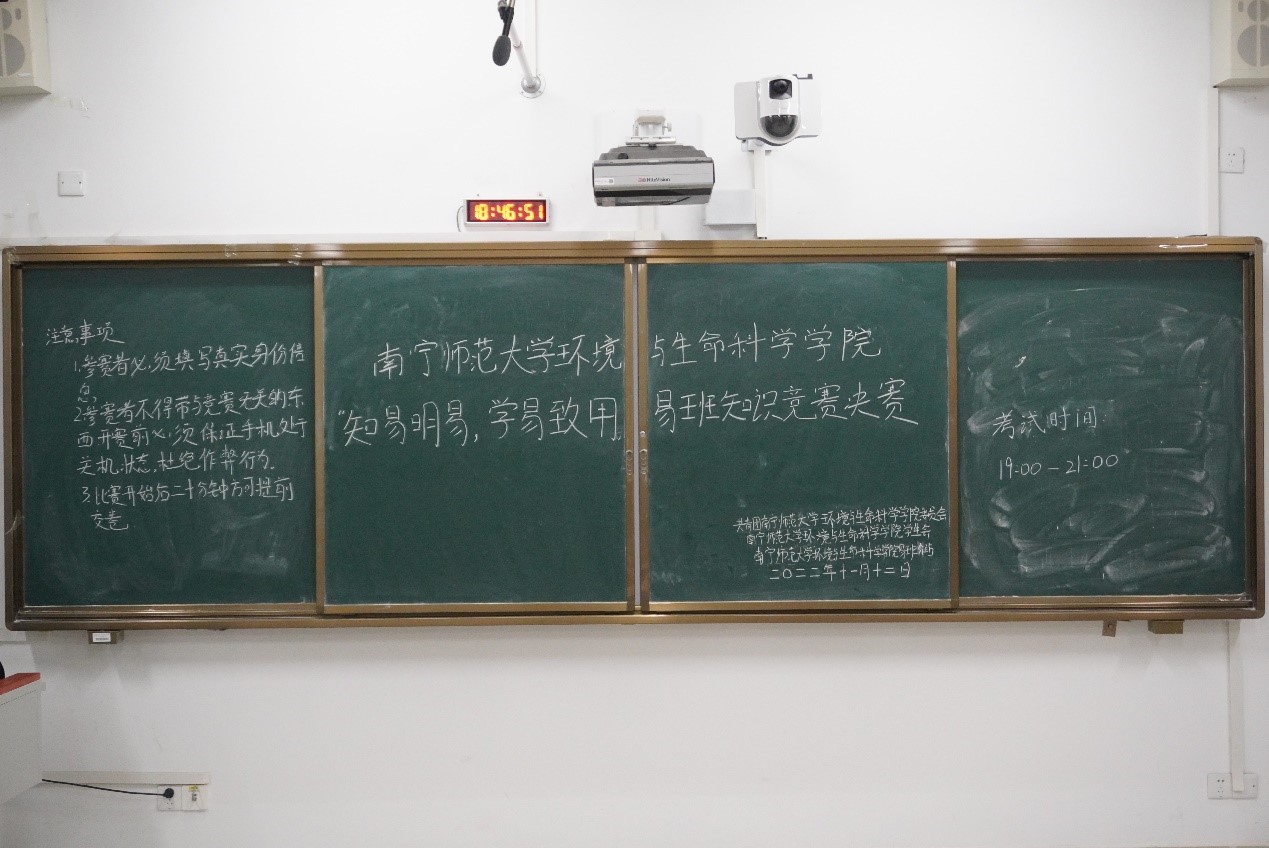 18:46:51
HiteVision
注意事项
1.参赛者必须填写真实身份信
息
2.参赛者不得带与竞赛无关的东
西开赛前必须保证手机处于
关机状态,杜绝作弊行为.
3.比赛开始后二十分钟方可提前
交卷
南宁师范大学环境与生命科学学院
“知易明易,学易致用”易班知识竞赛决赛
共青团南宁师范大学环境与生命科学学院委员会
南宁师范大学环境与生命科学学院学生会
南宁师范大学环境与生命科学学院易班工作站
二〇二二年十一月十二日
考试时间:
19:00-21:00